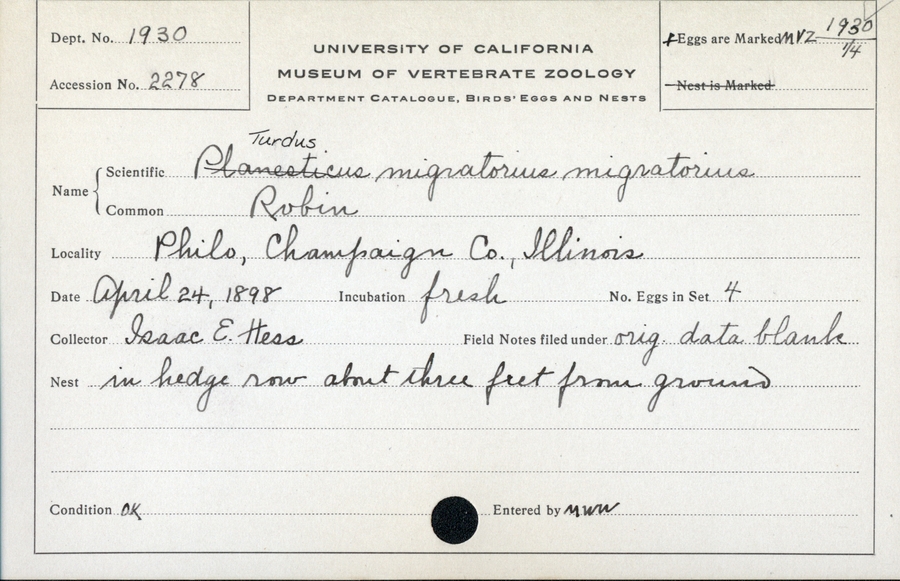 Dept. No. 1930
Accession No. 2278
UNIVERSITY OF CALIFORNIA
MUSEUM OF VERTEBRATE ZOOLOGY
DEPARTMENT CATALOGUE, BIRDS' EGGS AND NESTS
Eggs are Marked MVZ 1930
1/4
Nest is Marked
Turdus
Name Scientific Planesticus migratorius migratorius
Common Robin
Locality Philo, Champaign Co., Illinois
Date April 24, 1898 Incubation fresh No. Eggs in Set 4
Collector Isaac E. Hess Field Notes filed under orig. data blank
Nest in hedge row about three feet from ground
Condition OK Entered by MWW